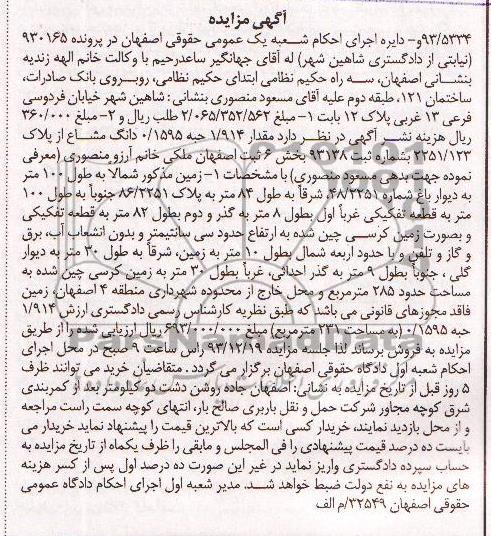 آگهی مزایده
۹۳/۵۳۳۴و- دایره اجرای احکام شعبه یک عمومی حقوقی اصفهان در پرونده ۹۳۰۱۶۵
(نیابتی از دادگستری شاهین شهر) له آقای جهانگیر ساعدرحیم با وکالت خانم الهه زندیه
بنشانی اصفهان، سه راه حکیم نظامی ابتدای حکیم نظامی، روبروی بانک صادرات،
ساختمان ۱۲۱، طبقه دوم علیه آقای مسعود منصوری بنشانی: شاهین شهر خیابان فردوسی
فرعی ۱۳ غربی پلاک ۱۲ بابت ۱- مبلغ ۲/۰۶۵/۳۵۲/۵۶۲ طلب ریال و ۲- مبلغ ۳۶۰/۰۰۰
ریال هزینه نشر آگهی در نظر دارد مقدار ۱/۹۱۴ حبه ۰/۱۵۹۵ دانگ مشاع از پلاک
۲۲۵۱/۱۲۳ بشماره ثبت ۹۳۱۲۸ بخش ۶ ثبت اصفهان ملکی خانم آرزو منصوری (معرفی
نموده جهت بدهی مسعود منصوری) با مشخصات ۱- زمین مذکور شمالا به طول ۱۰۰ متر
به دیوار باغ شماره ۴۸/۲۲۵۱، شرقاً به طول ۸۴ متر به پلاک ۸۶/۲۲۵۱ جنوباً به طول ۱۰۰
متر به قطعه تفکیکی غرباً اول بطول ۸ متر به گذر و دوم بطول ۸۲ متر به قطعه تفکیکی
و بصورت زمین کرسی چین شده به ارتفاع حدود سی سانتیمتر و بدون انشعاب آب، برق
و گاز و تلفن و با حدود اربعه شمال بطول ۱۰ متر به زمین، شرقاً به طول ۳۰ متر به دیوار
گلی ، جنوباً بطول ۹ متر به گذر احداثی، غرباً بطول ۳۰ متر به زمین کرسی چین شده به
مساحت حدود ۲۸۵ مترمربع و محل خارج از محدوده شهرداری منطقه ۴ اصفهان، زمین
فاقد مجوزهای قانونی می باشد که طبق نظریه کارشناس رسمی دادگستری ارزش ۱/۹۱۴
حبه ۰/۱۵۹۵ (به مساحت ۲۳۱ مترمربع) مبلغ ۶۹۳/۰۰۰/۰۰۰ ریال ارزیابی شده را از طریق
مزایده به فروش برساند لذا جلسه مزایده ۹۳/۱۲/۱۹ راس ساعت ۹ صبح در محل اجرای
احکام شعبه اول دادگاه حقوقی اصفهان برگزار می گردد . متقاضیان خرید می توانند ظرف
۵ روز قبل از تاریخ مزایده به نشانی: اصفهان جاده روشن دشت دو کیلومتر بعد از کمربندی
شرق کوچه مجاور شرکت حمل و نقل باربری صالح بار، انتهای کوچه سمت راست مراجعه
و از محل بازدید نمایند، خریدار کسی است که بالاترین قیمت را پیشنهاد نماید خریدار می
بایست ده درصد قیمت پیشنهادی را فی المجلس و مابقی را ظرف یکماه از تاریخ مزایده به
حساب سپرده دادگستری واریز نماید در غیر این صورت ده درصد اول پس از کسر هزینه
های مزایده به نفع دولت ضبط خواهد شد. مدیر شعبه اول اجرای احکام دادگاه عمومی
حقوقی اصفهان ۳۲۵۴۹/م الف